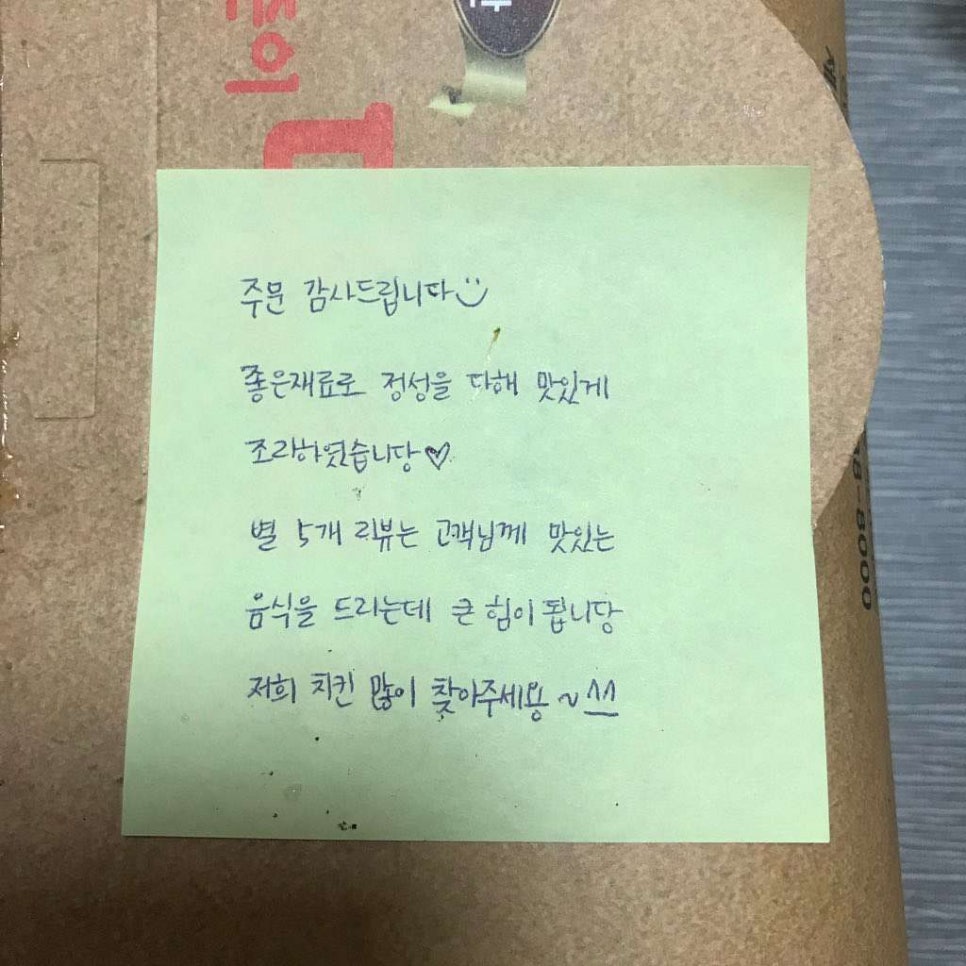 주문 감사드립니다
좋은재료로 정성을 다해 맛있게
조리하였습니당♡
별 5개 리뷰는 고객님께 맛있는
음식을 드리는데 큰 힘이 됩니당
저희 치킨 많이 찾아주세용 ~ ^^
-8000